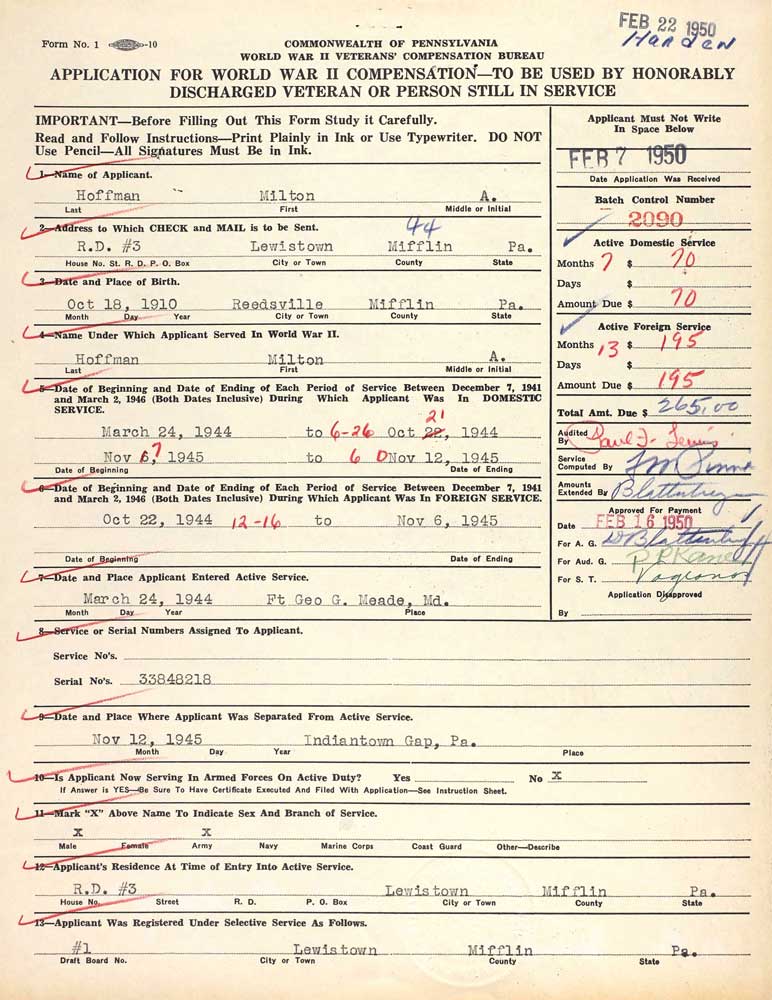 FEB 22 1950
Harden
Form No. 1 -10
COMMONWEALTH OF PENNSYLVANIA
WORLD WAR II VETERANS' COMPENSATION BUREAU
APPLICATION FOR WORLD WAR II COMPENSATION—TO BE USED BY HONORABLY
DISCHARGED VETERAN OR PERSON STILL IN SERVICE
IMPORTANT—Before Filling Out This Form Study it Carefully.
Read and Follow Instructions—Print Plainly in Ink or Use Typewriter. DO NOT
Use Pencil—All Signatures Must Be in Ink.
1—Name of Applicant.
Hoffman Milton A.
Last First Middle or Initial
2—Address to Which CHECK and MAIL is to be Sent. 44
R.D. #3 Lewistown Mifflin Pa.
House No. St. R. D. P. O. Box City or Town County State
3—Date and Place of Birth.
Oct 18, 1910 Reedsville Mifflin Pa.
Month Day Year City or Town County State
4—Name Under Which Applicant Served In World War II.
Hoffman Milton A.
Last First Middle or Initial
5—Date of Beginning and Date of Ending of Each Period of Service Between December 7, 1941
and March 2, 1946 (Both Dates Inclusive) During Which Applicant Was In DOMESTIC
SERVICE.
21
March 24, 1944 to 6-26 Oct 22, 1944
Nov 6, 7 1945 to 6 D Nov 12, 1945
Date of Beginning Date of Ending
6—Date of Beginning and Date of Ending of Each Period of Service Between December 7, 1941
and March 2, 1946 (Both Dates Inclusive) During Which Applicant Was In FOREIGN SERVICE.
Oct 22, 1944 12-16 to Nov 6, 1945
Date of Beginning Date of Ending
7—Date and Place Applicant Entered Active Service.
March 24, 1944 Ft Geo G. Meade, Md.
Month Day Year Place
Applicant Must Not Write
In Space Below
FEB 7 1950
Date Application Was Received
Batch Control Number
2090
Active Domestic Service
Months 7 $ 70
Days $
Amount Due $ 70
Active Foreign Service
Months 13 $ 195
Days $
Amount Due $ 195
Total Amt. Due $ 265.00
Audited
By Paul F. Lewis
Service
Computed By
Amounts
Extended By
Approved For Payment
Date FEB 16 1950
For A. G.
For Aud. G. Kane
For S. T.
Application Disapproved
By
8—Service or Serial Numbers Assigned To Applicant.
Service No's.
Serial No's. 33848218
9—Date and Place Where Applicant Was Separated From Active Service.
Nov 12, 1945 Indiantown Gap, Pa.
Month Day Year Place
10—Is Applicant Now Serving In Armed Forces On Active Duty? Yes No X
If Answer is YES—Be Sure To Have Certificate Executed And Filed With Application—See Instruction Sheet.
11—Mark "X" Above Name To Indicate Sex And Branch of Service.
X X
Male Female Army Navy Marine Corps Coast Guard Other—Describe
12—Applicant's Residence At Time of Entry Into Active Service.
R.D. #3 Lewistown Mifflin Pa.
House No. Street R. D. P. O. Box City or Town County State
13—Applicant Was Registered Under Selective Service As Follows.
#1 Lewistown Mifflin Pa.
Draft Board No. City or Town County State